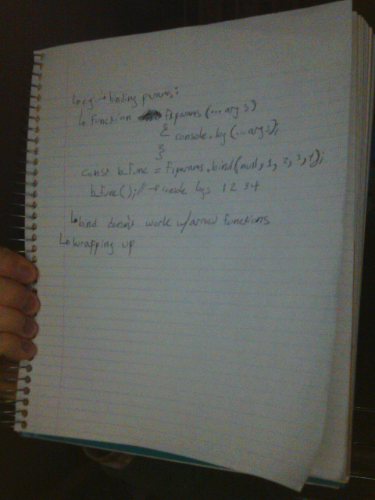 binding params:
↳ Function Fiparams (...args)
{ console.log (...args);
}
const bfunc = Fiparams.bind(null, 1, 2, 3, 4);
bfunc(); // → console logs 1 2 3 4
↳ bind doesn't work w/arrow functions
↳ Wrapping up